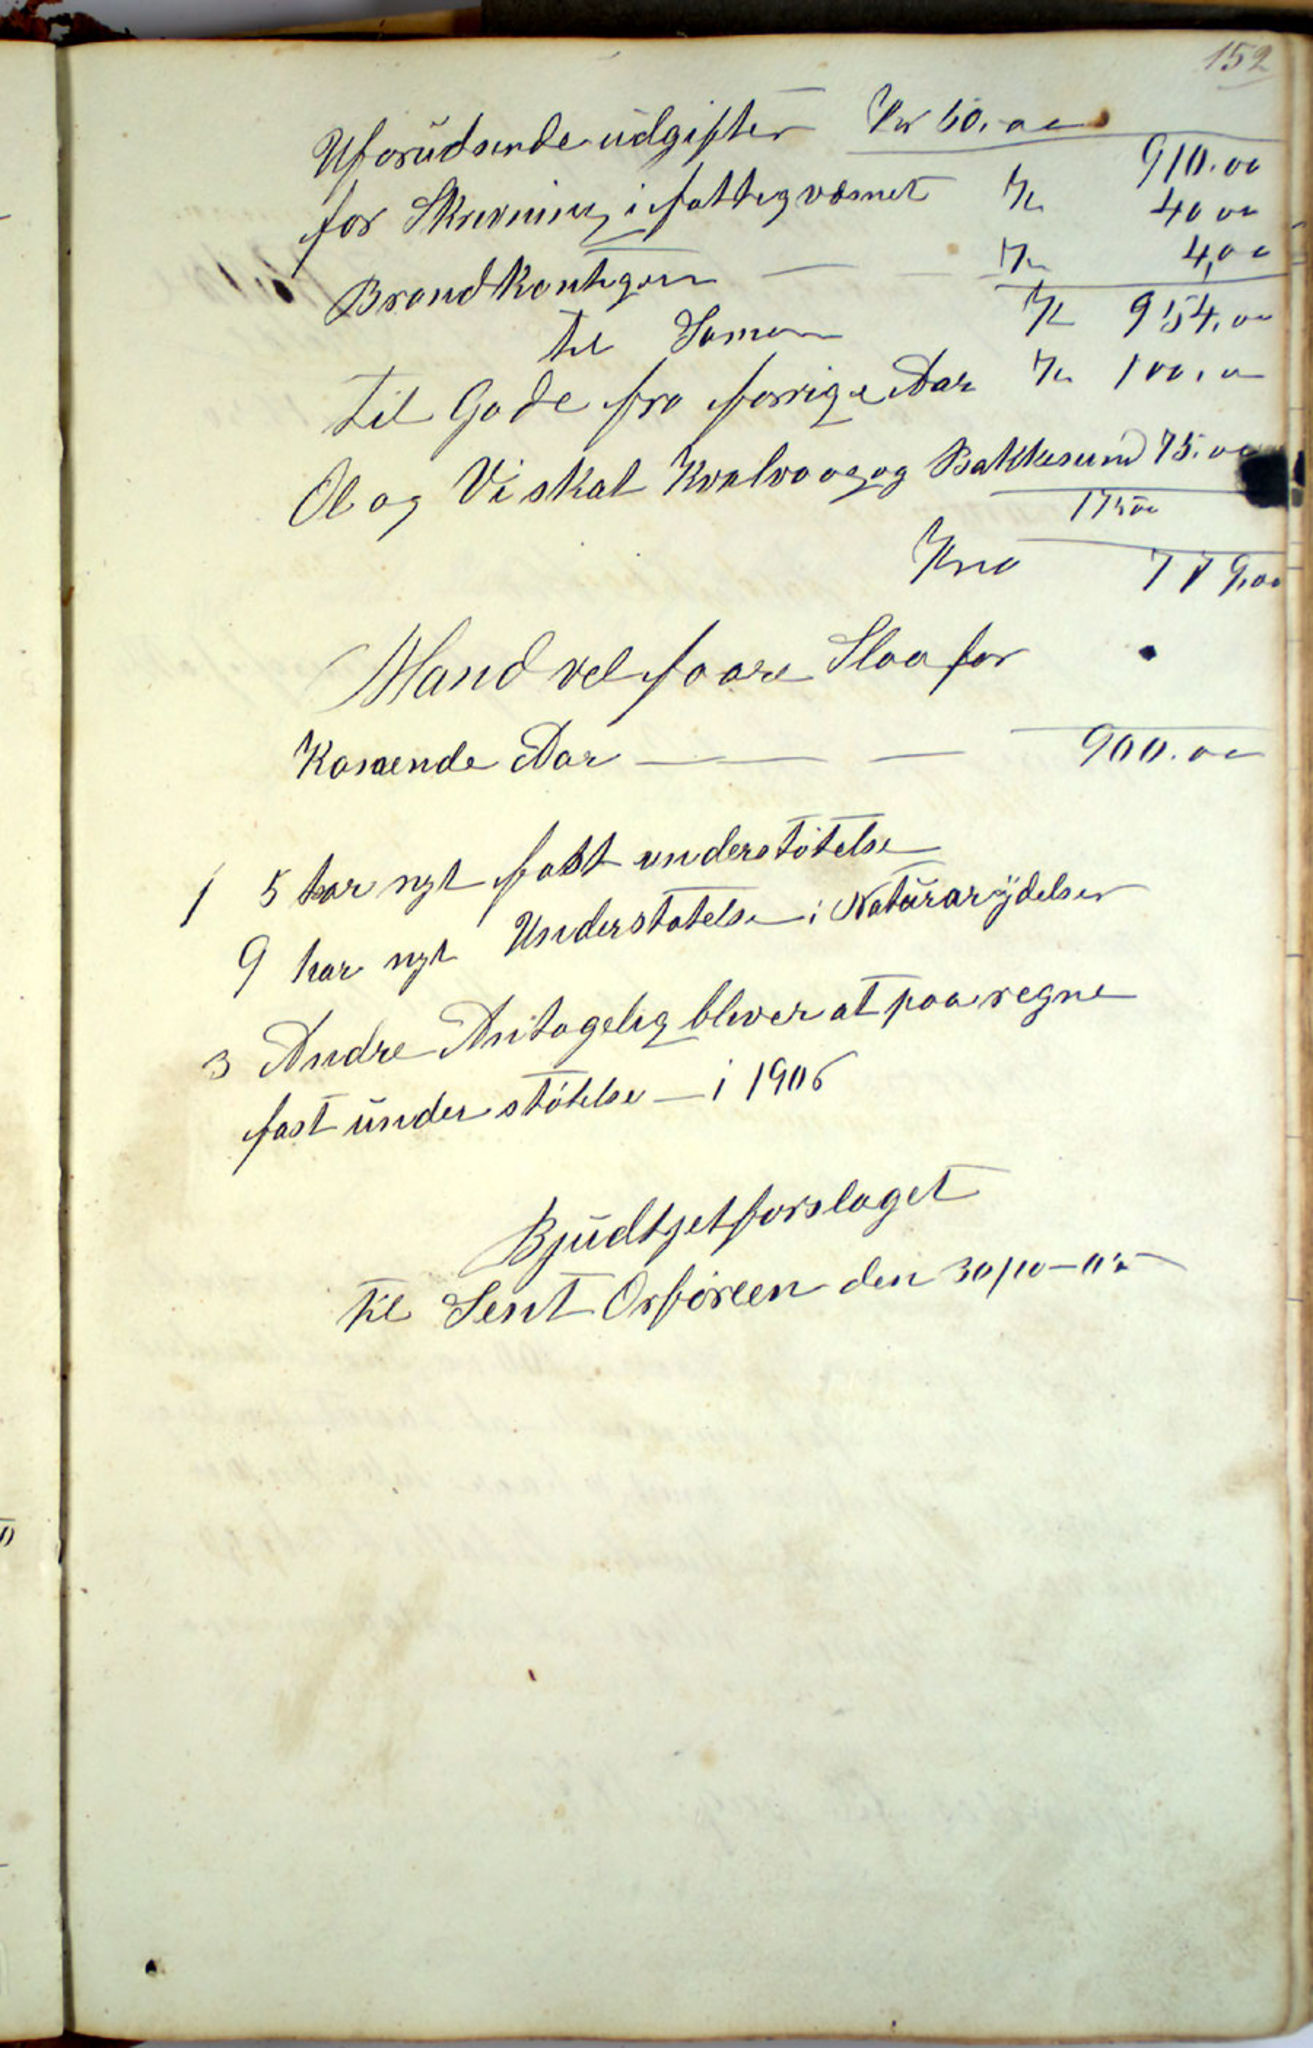 152
Uforudsende udgifter Kr 60.00
910.00
for Skrivning i fattigvæsnet Kr 40 00
Brandkontigen Kr 4,00
til Samen Kr 954,00
til Gode fra forrige Aar Kr 100,00
Øl og Vi skat Kvalvaag og Bakkesund 75.00
175 00
Kro 779,00
Mand vel faare Slaa for
Komende Aar 900.00
1 5 har nyt fast understøtelse
9 har nyt Understøtelse i Naturarydelser
3 Andre Antagelig bliver at paaregne
fast understøtelse i 1906
Bjudtjetforslaget
til Sent Orføreen den 30/10-05